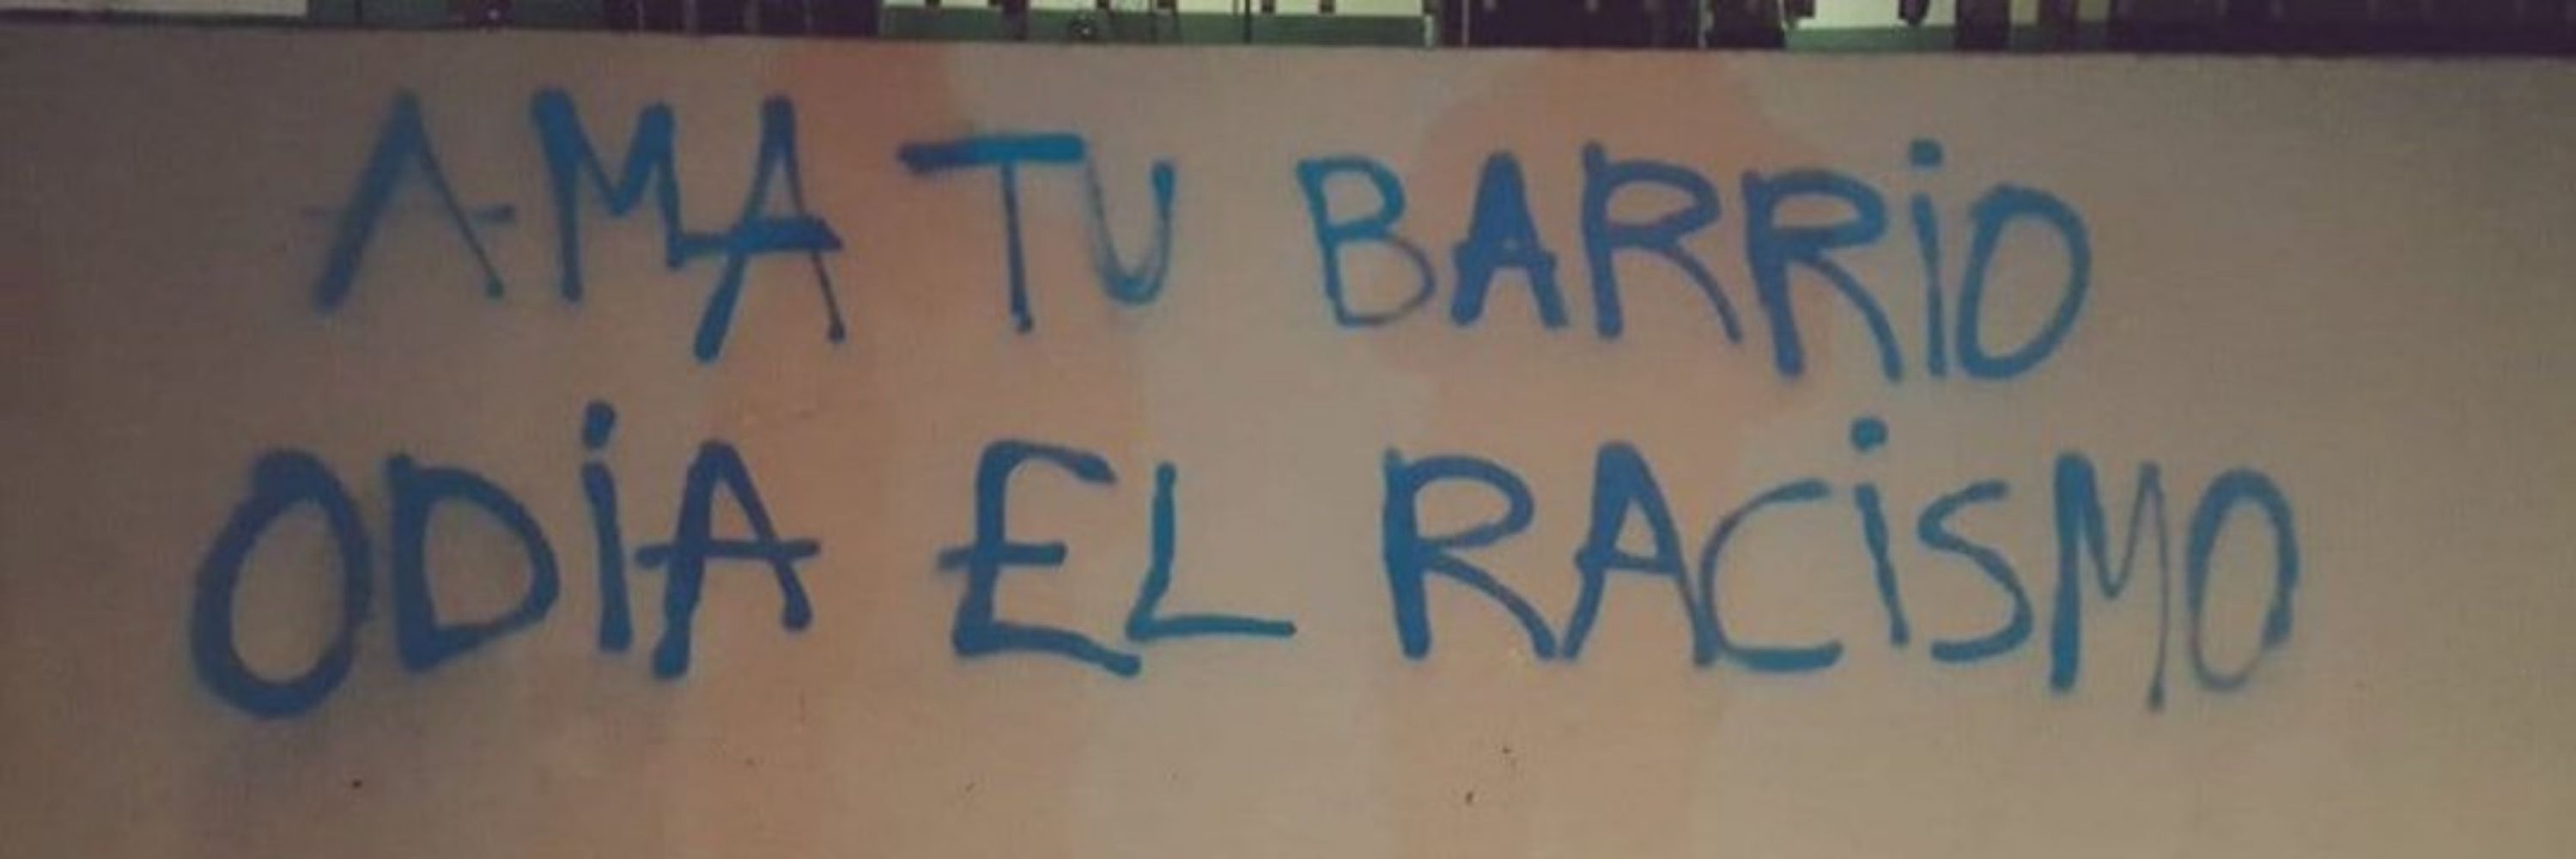 AMA TU BARRiO
ODiA EL RACiSMO